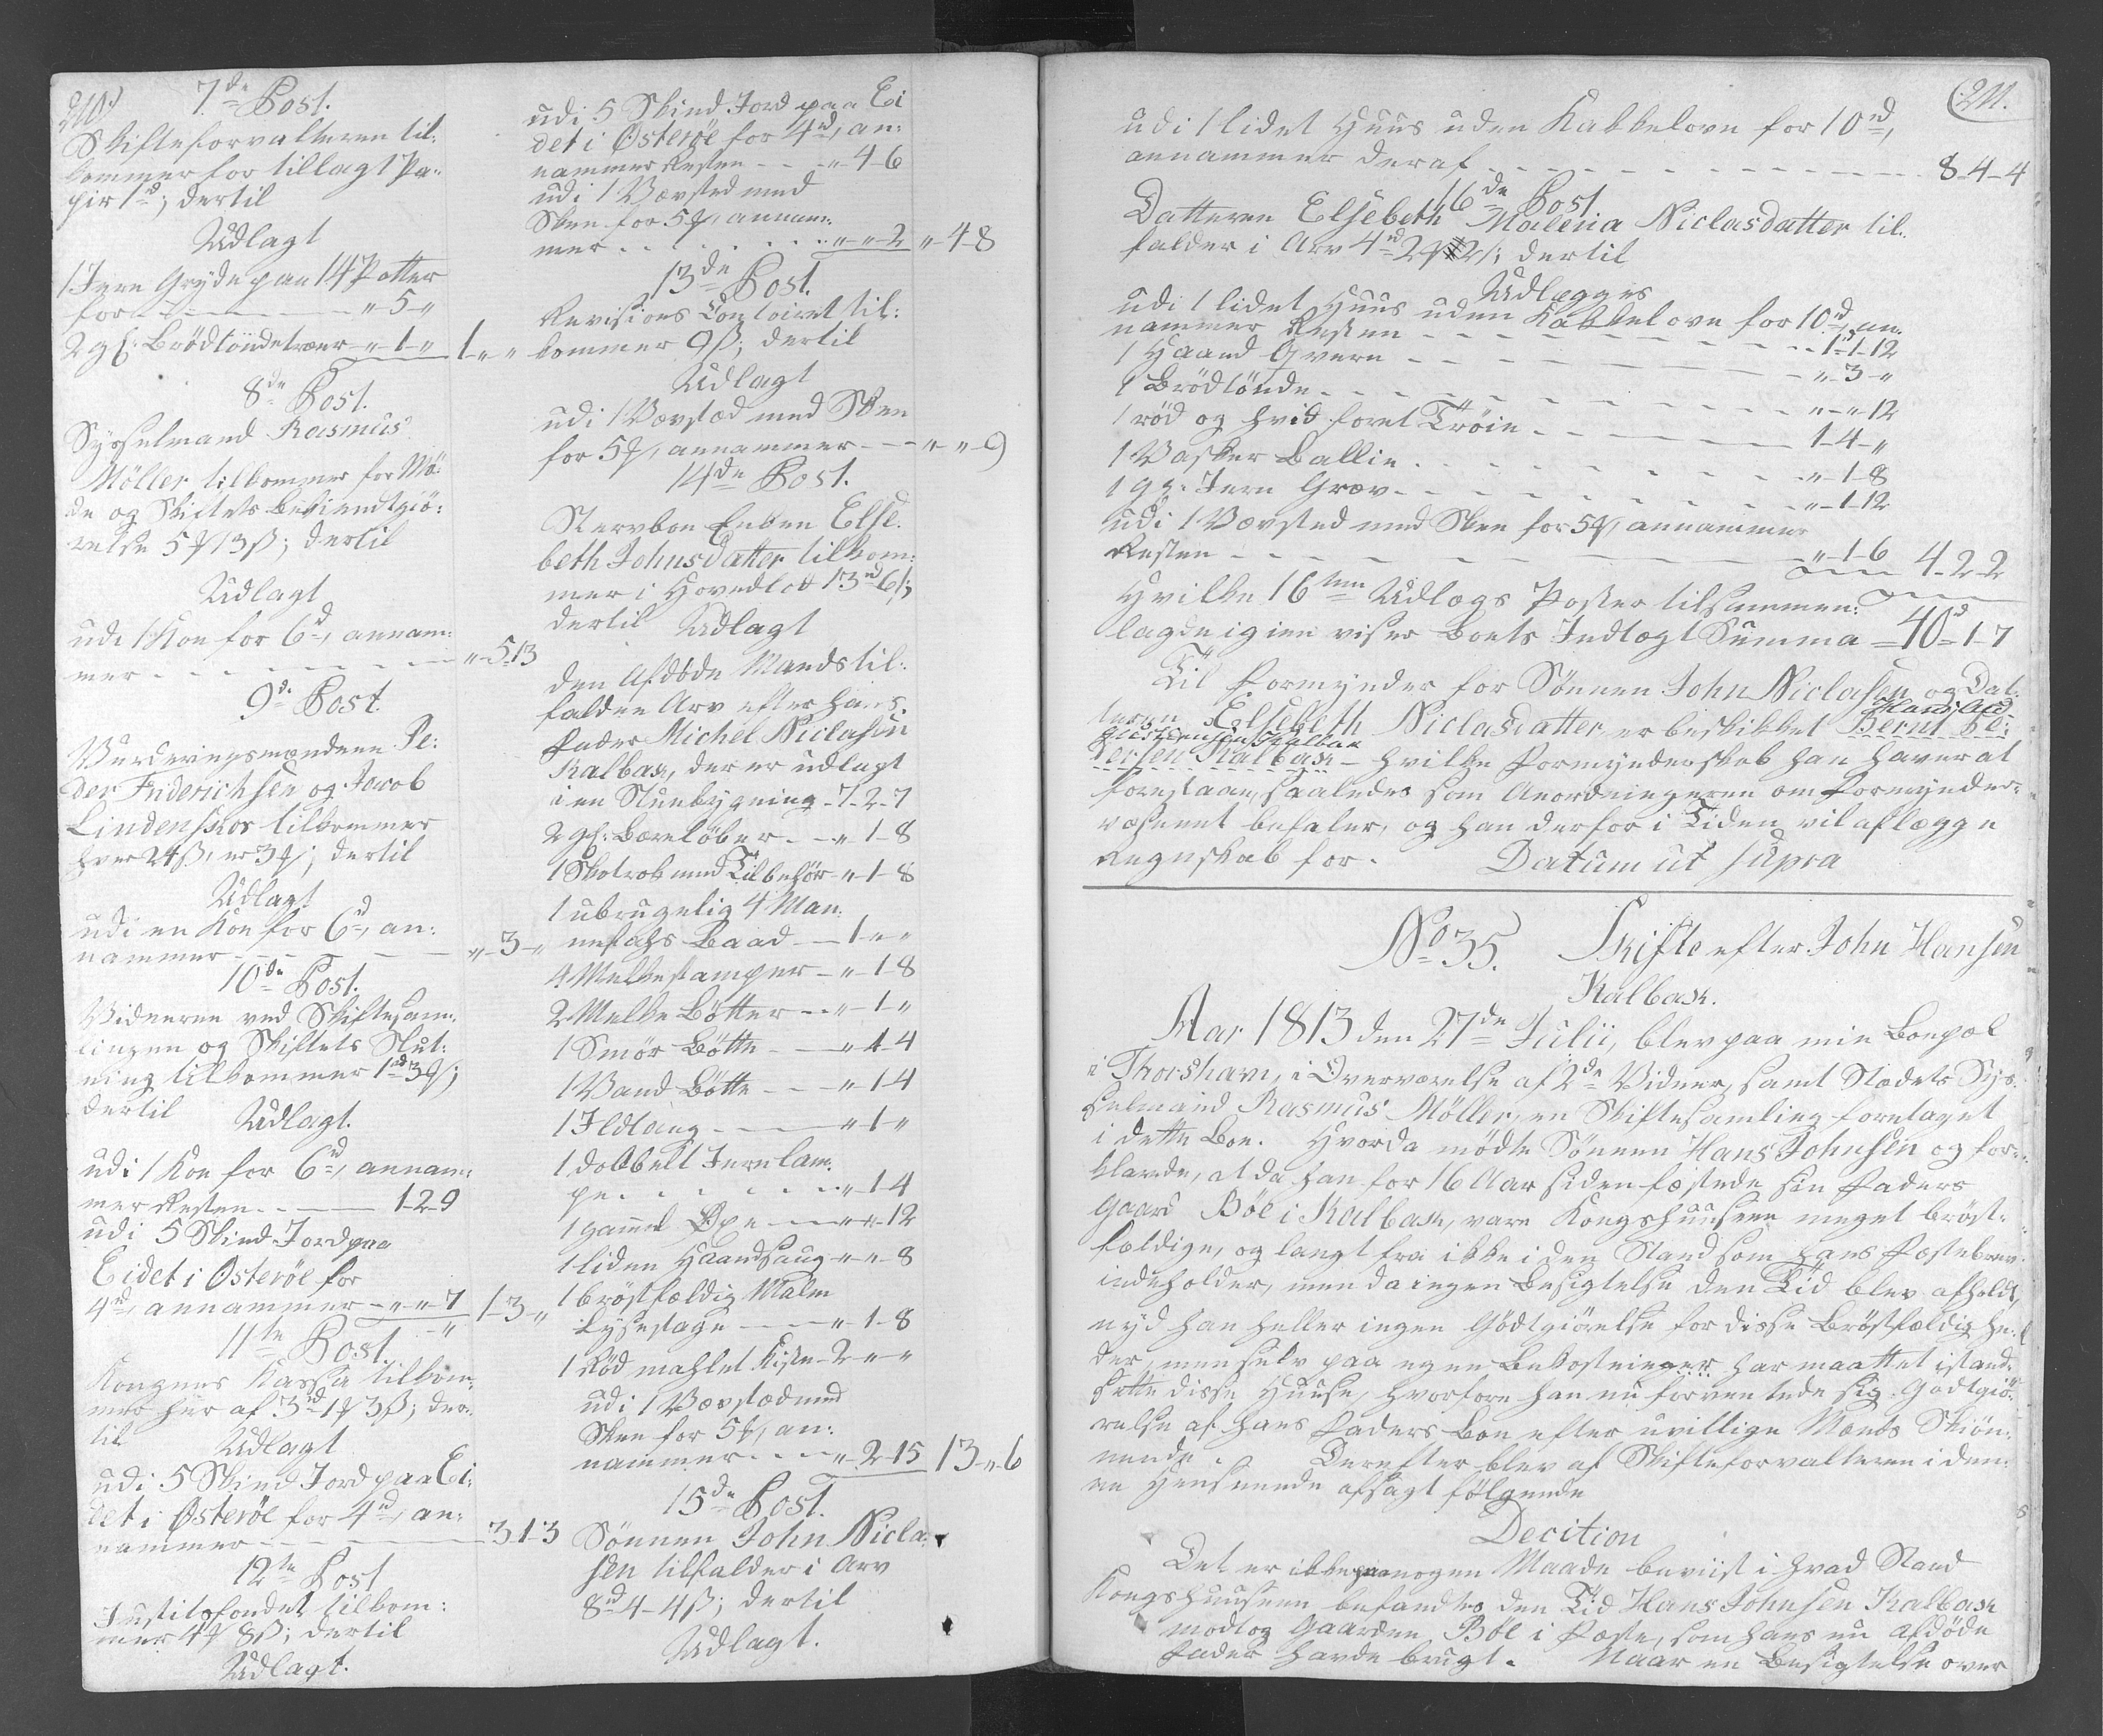 210)
7de Post.
Skifteforvalteren til-
kommer for tillagt Pa-
pir 1d; dertil
Udlagt
1 Jern Gryde paa 14 Potter
for - - - - " 5 "
2 gl: Brödtöndetræer - " 1 " 1 " "
8de Post.
Sysselmand Rasmus
Möller tilkommer for Mö-
de og Skiftets bekiendtgiö-
relse 5 ƒ 13 ß; dertil
Udlagt
udi 1 Koe for 6rd, annam-
mer - - - - " 5 13
9de Post
Vurderingsmændene Pe-
der Friderichsen og Jacob
Lindenskov tilkommer
hver 24 ß, er 3 ƒ; dertil
Udlagt
udi en Koe for 6rd, an-
nammer - - - " 3 "
10de Post.
Vidnerne ved Skiftesam-
lingen og Skiftets Slut-
ning tilkommer 1rd 3 ƒ;
dertil
Udlagt.
udi 1 Koe for 6rd, annam-
mer Resten - - - 1 2 9
udi 5 Skind Jord paa
Eidet i Österöe for
4rd, annammer - " " 7 1 3 "
11te Post.
Kongens Kassa tilkom-
mer her af 3rd 1 ƒ 3 ß; der-
til
Udlagt
udi 5 Skind Jord paa Ei-
det i Österöe for 4rd, an-
nammer - - - 3 1 3
12te Post
Justitsfondet tilkom-
mer 4 ƒ 8 ß; dertil
Udlagt.
udi 5 Skind Jord paa Ei
det i Österöe for 4rd, an-
nammer Resten - - " 4 6
udi 1 Vævsted med
Skee for 5 ƒ, annam-
mer - - - " " 2 " 4 8
13de Post.
Revisions Contoiret til-
kommer 9 ß; dertil
Udlagt
udi 1 Vævstæd med Skee
for 5 ƒ, annammer - - " " 9
14de Post.
Stervboe Enken Else-
beth Johnsdatter tilkom-
mer i Hovedlod 13rd 6 ß;
dertil
Udlagt
den Afdöde Mands til-
faldne Arv efter hans
Fader Michel Niclasen
Kalbak, der er udlagt
i en Stuebygning - 7 2 7
2 gl: Bæreløber - - " 1 8
1 Skotrok med Tilbehör - " 1 8
1 ubrugelig 4 Man-
nefahrs Baad - - 1 " "
4 Melkestamper - " 1 8
2 Melke Bötter - - " 1 "
1 Smör Bötte - - " 4 4
1 Vand Bötte - - " 1 4
1 Ildtang - - " 1 "
1 dobbelt Jernlam-
pe - - - " 1 4
1 gamel Öxe - - " " 12
1 liden Haandsaug - " " 8
1 bröstfældig Malm
Lysestage - - " 1 8
1 Röd mahlet Kiste - 2 " "
udi 1 Vævstæd med
Skee for 5 ƒ, an-
nammer - - " 2 15 13 " 6
15de Post.
Sönnen John Nicla-
sen tilfalder i Arv
8rd 4 4 ß; dertil
Udlagt.
(211.
udi 1 lidet Huus uden Kakkelovn for 10rd,
annammer deraf - - - - 8 4 4
16de Post
Datteren Elsebeth Malena Niclasdatter til-
falder i Arv 4rd 2 ƒ 2 ß; dertil
Udlægges
udi 1 lidet Huus uden Kakkelovn for 10rd, an-
nammer Resten - - - 1 1 12
1 Haand Qvern - - - " 3 "
1 Brödtönde - - - " " 12
1 röd og hvid foret Tröie - - - 1 4 "
1 Vasker Ballie - - - " 1 8
1 gl: Jern Grav - - - " 1 12
udi 1 Vævsted med Skee for 5 ƒ, annammer
Resten - - - " 1 6 4 2 2
Hvilke 16ten Udlægs Poster tilsammen-
lagde igien viser Boets Indtægt Summa = 40d 1 7
Til Formynder for Sönnen John Niclasen og Dat-
teren Elsebeth Niclasdatter er beskikket Bernt Pe-
tersen Kalbak - hvilke Formynderskab han haver at
forestaae, saaledes som Anordningerne om Formynder-
væsenet befaler, og han derfor i Tiden vil aflægge
Regnskab for. Datum ut supra
No 35. Skifte efter John Hansen
Kalbak.
Aar 1813 den 27de Julii, blev paa min Boepæl
i Thorshavn, i Overværelse af 2de Vidner, samt Stædets Sys-
selmand Rasmus Möller, en Skiftesamling foretaget
i dette Boe. Hvorda mödte Sönnen Hans Johnsen og for-
klarede, at da han for 16 Aar siden fæstede sin Faders
Gaard Böe i Kalbak, vare Kongshuusene meget bröst-
fældige, og langt fra ikke i den Stand som hans Fæstebrev
indeholder, men da ingen Besigtelse den Tid blev afholdt,
nyd han heller ingen Gödtgiörelse for disse Bröstfældighe-
der, men selv paa egen Bekostninger har maattet istand-
sætte disse Huuse, hvorfore han nu forventede sig Godtgiö-
relse af hans Faders Boe efter uvillige Mænds Skiön-
nende. Derefter blev af Skifteforvalteren i den-
ne Henseende afsagt fölgende
Decition
Det er ikke paa nogen Maade beviist i hvad Stand
Kongshuusene befandtes den Tid Hans Johnsen Kalbak
modtog Gaarden Böe i Fæste, som hans nu Afdöde
Fader havde brugt. Naar en Besigtelse over